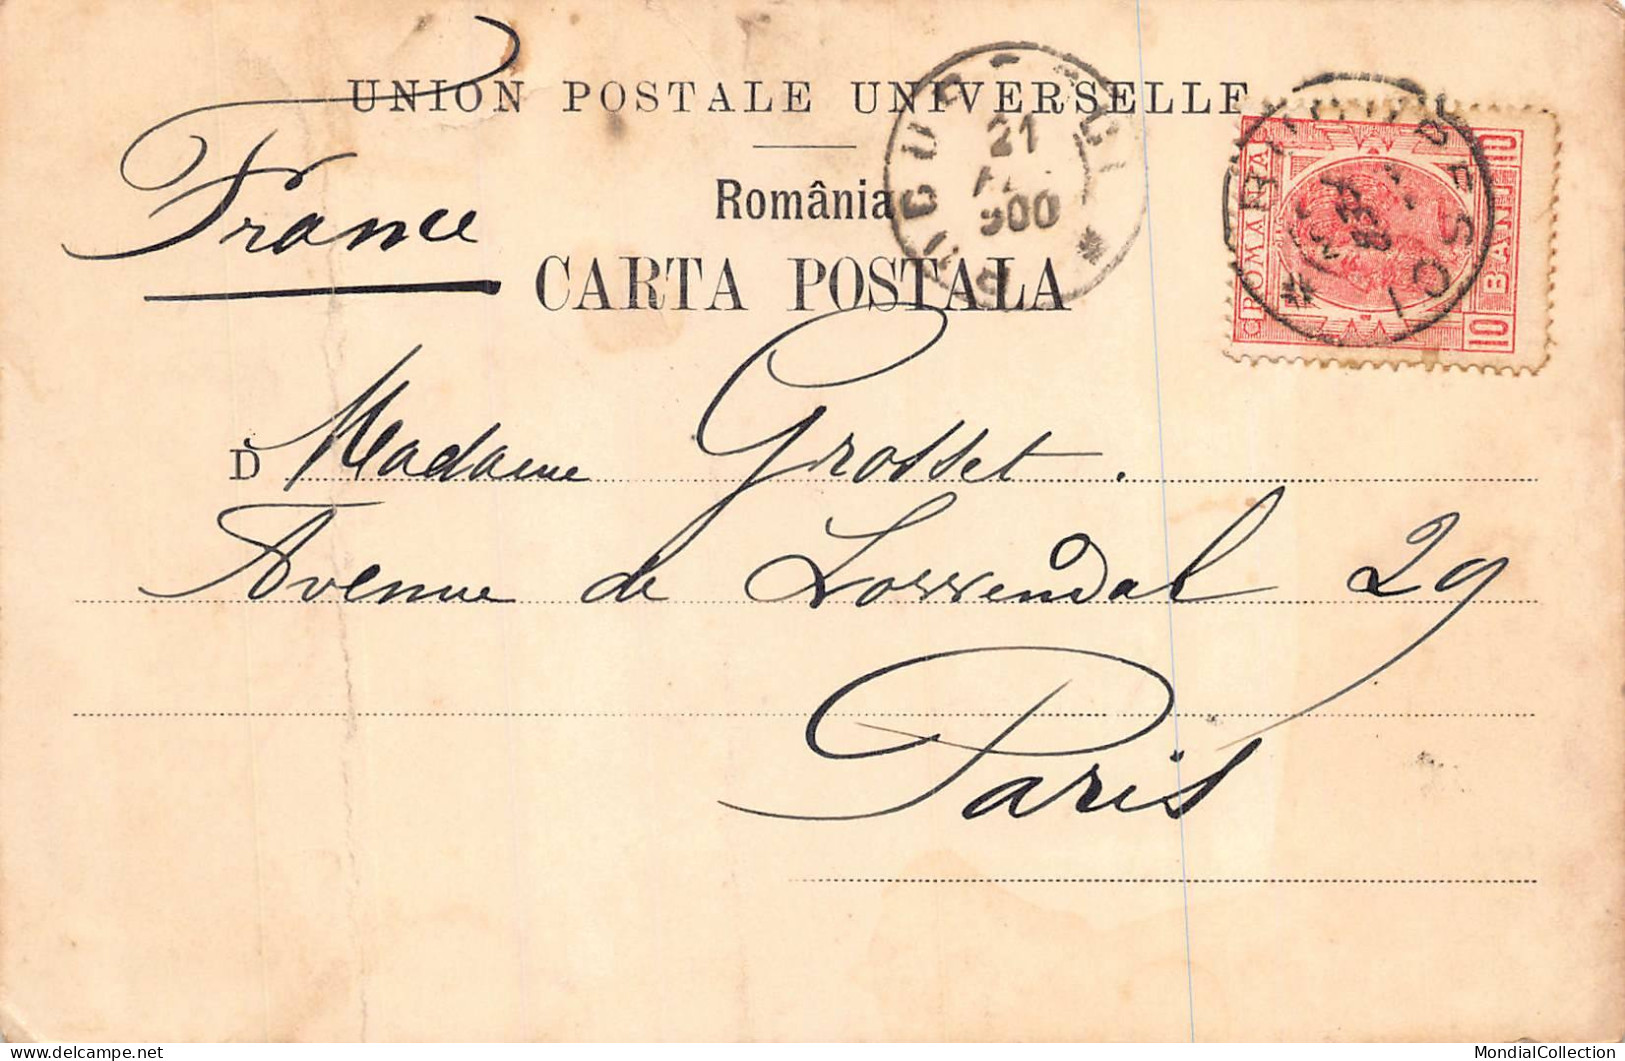 UNION POSTALE UNIVERSELLE
România
CARTA POSTALA
France
21
900
ROMANIA
10 BANI 10
D Madame Grosset.
Avenue de Lowendal 29
Paris
MondialCollection